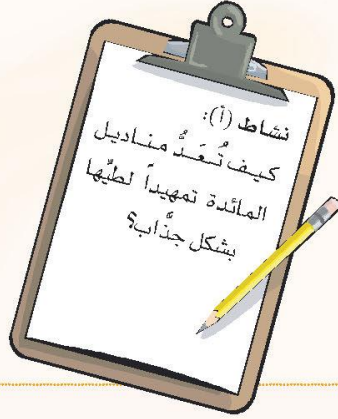 نشاط (أ):
كيف تُعَدُّ مناديل
المائدة تمهيداً لطيِّها
بشكل جذَّاب؟